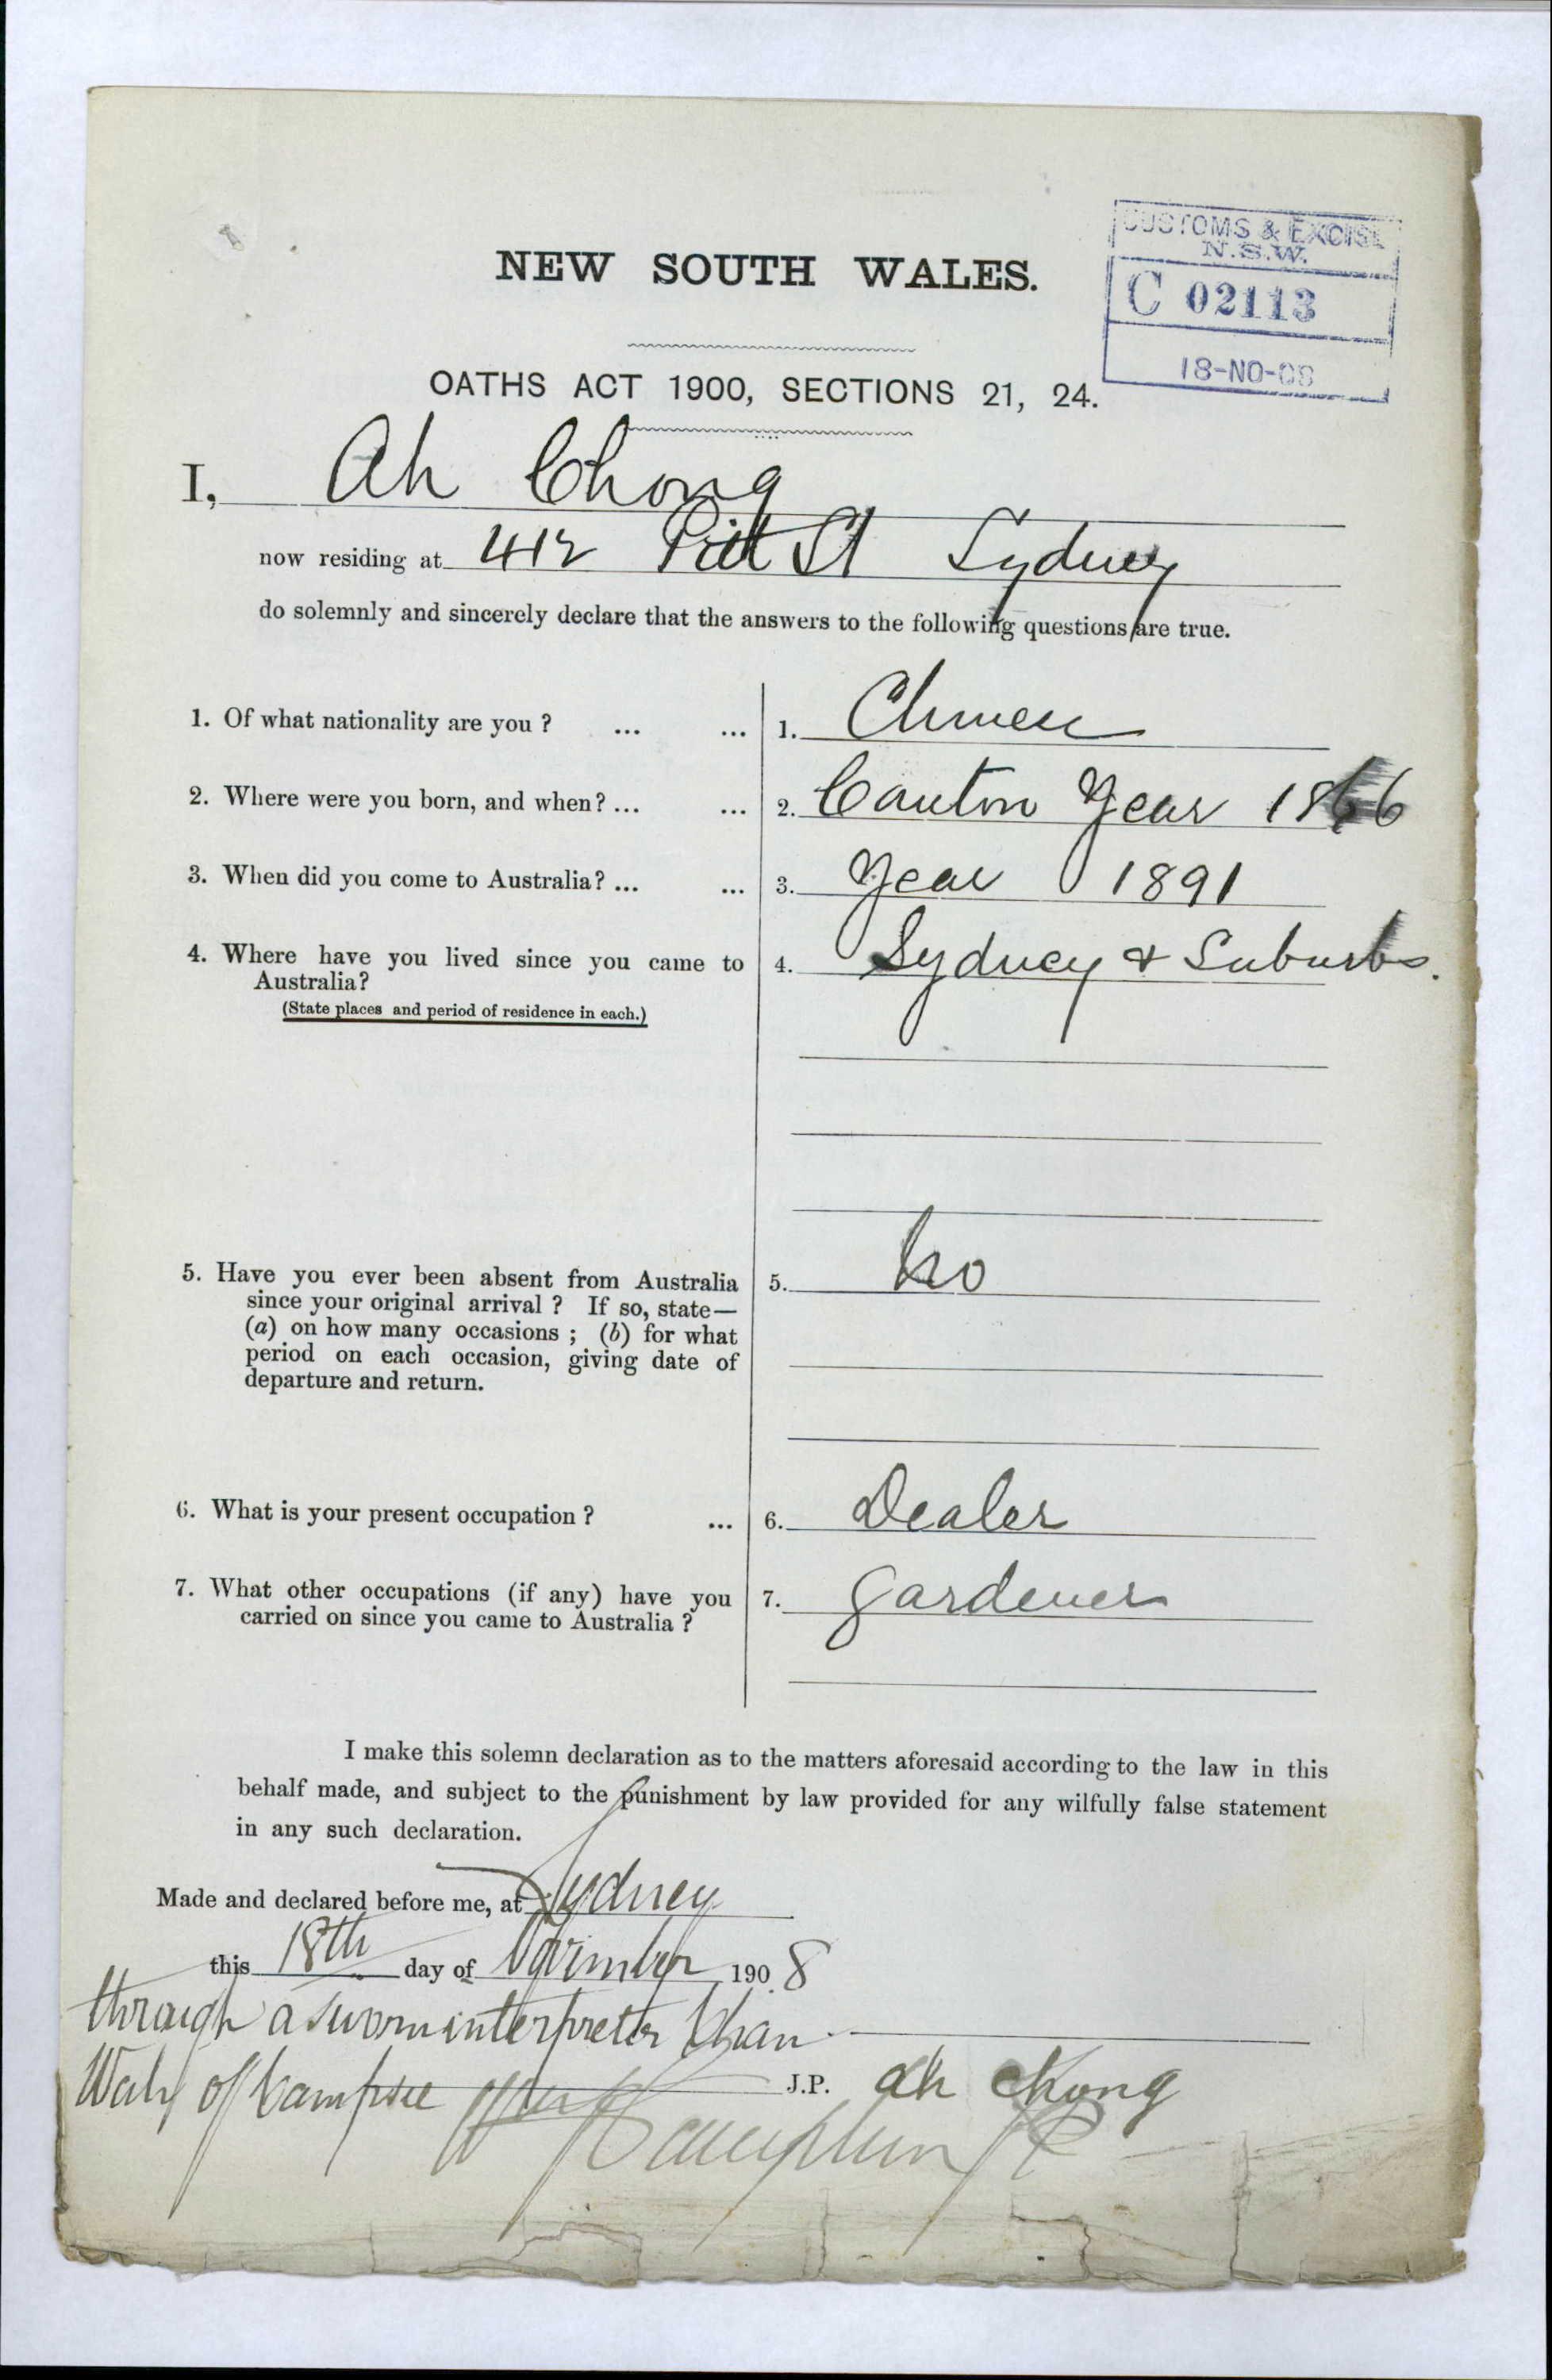 CUSTOMS & EXCISE
N.S.W.
C 02113
18-NO-08
NEW SOUTH WALES.
OATHS ACT 1900, SECTIONS 21, 24.
I, Ah Chong
now residing at 412 Pitt St Sydney
do solemnly and sincerely declare that the answers to the following questions are true.
1. Of what nationality are you ? ... ... 1. Chinese
2. Where were you born, and when ? ... ... 2. Canton Year 1866
3. When did you come to Australia ? ... ... 3. Year 1891
4. Where have you lived since you came to 4. Sydney & Suburbs.
Australia?
(State places and period of residence in each.)
5. Have you ever been absent from Australia 5. No
since your original arrival ? If so, state—
(a) on how many occasions ; (b) for what
period on each occasion, giving date of
departure and return.
6. What is your present occupation ? ... 6. Dealer
7. What other occupations (if any) have you 7. Gardener
carried on since you came to Australia ?
I make this solemn declaration as to the matters aforesaid according to the law in this
behalf made, and subject to the punishment by law provided for any wilfully false statement
in any such declaration.
Made and declared before me, at Sydney
this 18th day of November 1908
through a sworn interpreter Chan
Wah of Campsie
J.P. Ah Chong